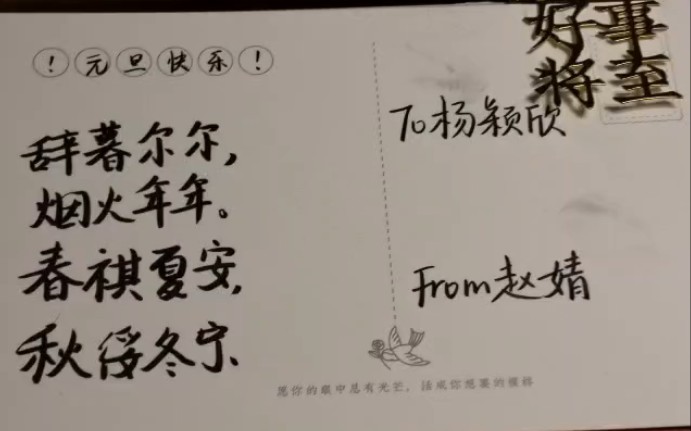 ！元旦快乐！
辞暮尔尔，
烟火年年。
春祺夏安，
秋绥冬宁
好事
将至
To杨颖欣
From赵婧
愿你的眼中总有光芒，活成你想要的模样